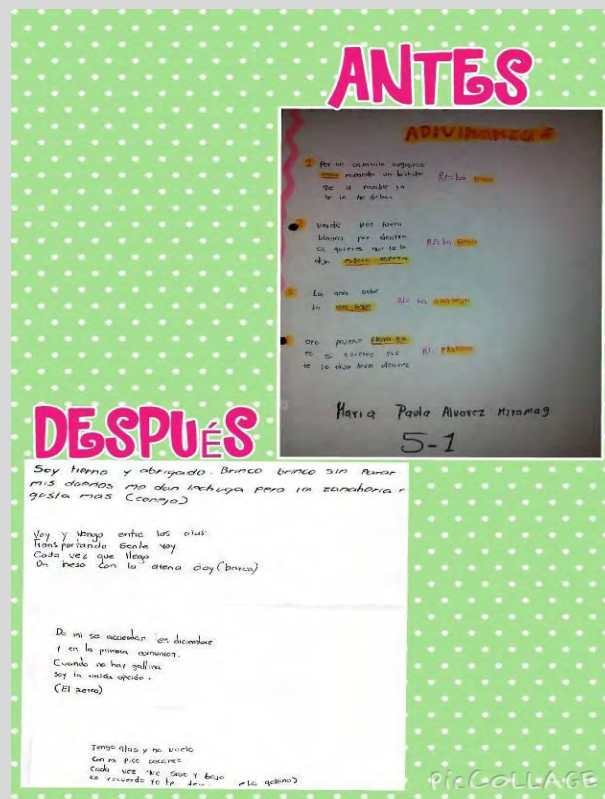 ANTES
ADIVINANZAS
1 Por un caminito
vaca mirando un bichito
ya
te lo he dicho
R/= La vaca
2 Verde por fuera
blanca por dentro
si quieres que te lo
diga espera espera
R/= La pera
3 La ana sube
la
R/= La
Oro parece plata no
es si quieres que
te lo diga
R/ Platano
Maria Paula Alvarez Miramag
5-1
DESPUÉS
Soy tierno y abrigado. Brinco brinco sin Parar
mis dueños me dan lechuga pero la zanahoria
gusta mas (conejo)
Voy y Vengo entre las olas
Transportando Gente voy
Cada vez que llego
Un beso con la arena doy (barco)
De mi se acuerdan en diciembre
y en la primera comunion.
Cuando no hay gallina
Soy la unica opción.
(El
Tengo alas y no vuelo
Con mi pico
Cada vez que Subo y bajo
recuerdo yo te (La gallina)
PicCOLLAGE